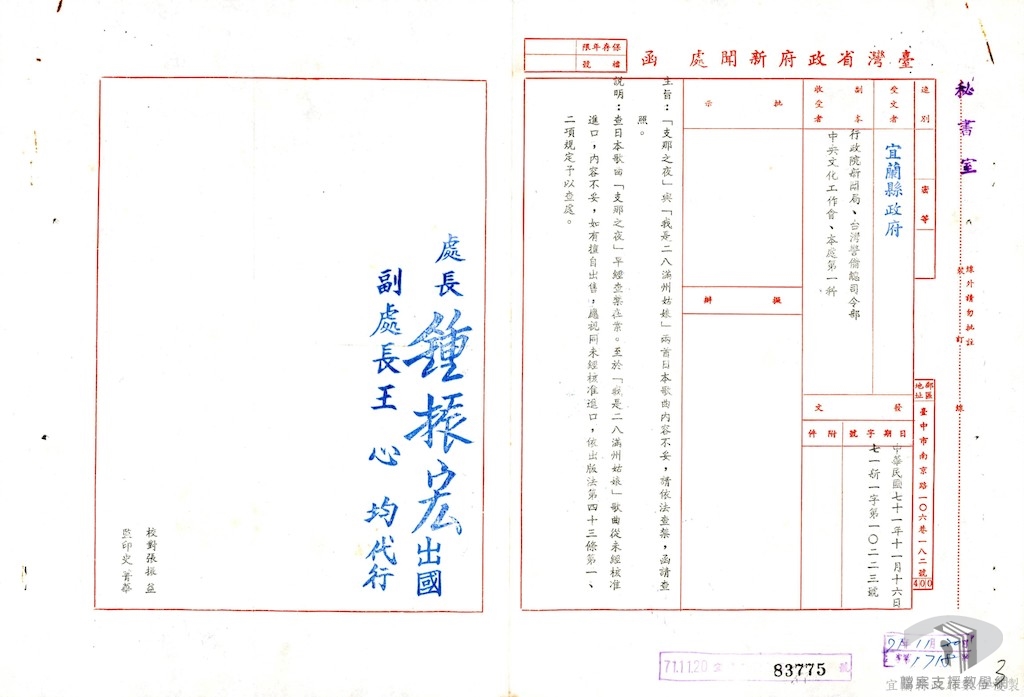 臺灣省政府新聞處 函
保存年限
檔號
速別
密等
受文者
宜蘭縣政府
副本
收受者
行政院新聞局、台灣警備總司令部
中央文化工作會、本處第一科
批示
擬辦
發文
日期
字號
附件
中華民國七十一年十一月十六日
七一新一字第一〇二二三號
郵區
地址
臺中市南京路一〇六巷一八二號
400
秘書室
線外請勿批註
裝
訂
線
主旨：「支那之夜」與「我是二八滿州姑娘」兩首日本歌曲內容不妥，請依法查禁，函請查
照。
說明：查日本歌曲「支那之夜」早經查禁在案。至於「我是二八滿州姑娘」歌曲從未經核准
進口，內容不妥，如有擅自出售，應視同未經核准進口，依出版法第四十三條第一、
二項規定予以查處。
處長 鍾振宏 出國
副處長 王心均 代行
校對張振益
監印史菁華
71.11.20
83775 號
3
檔案支援教學網